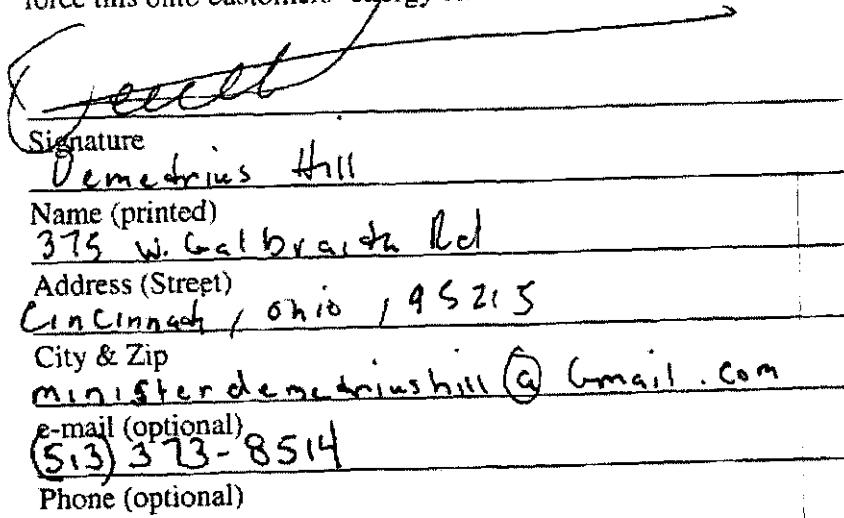 Signature
Demetrius Hill
Name (printed)
375 W. Galbraith Rd
Address (Street)
Cincinnati, Ohio, 45215
City & Zip
ministerdemetriushill@Gmail.com
e-mail (optional)
(513) 373-8514
Phone (optional)